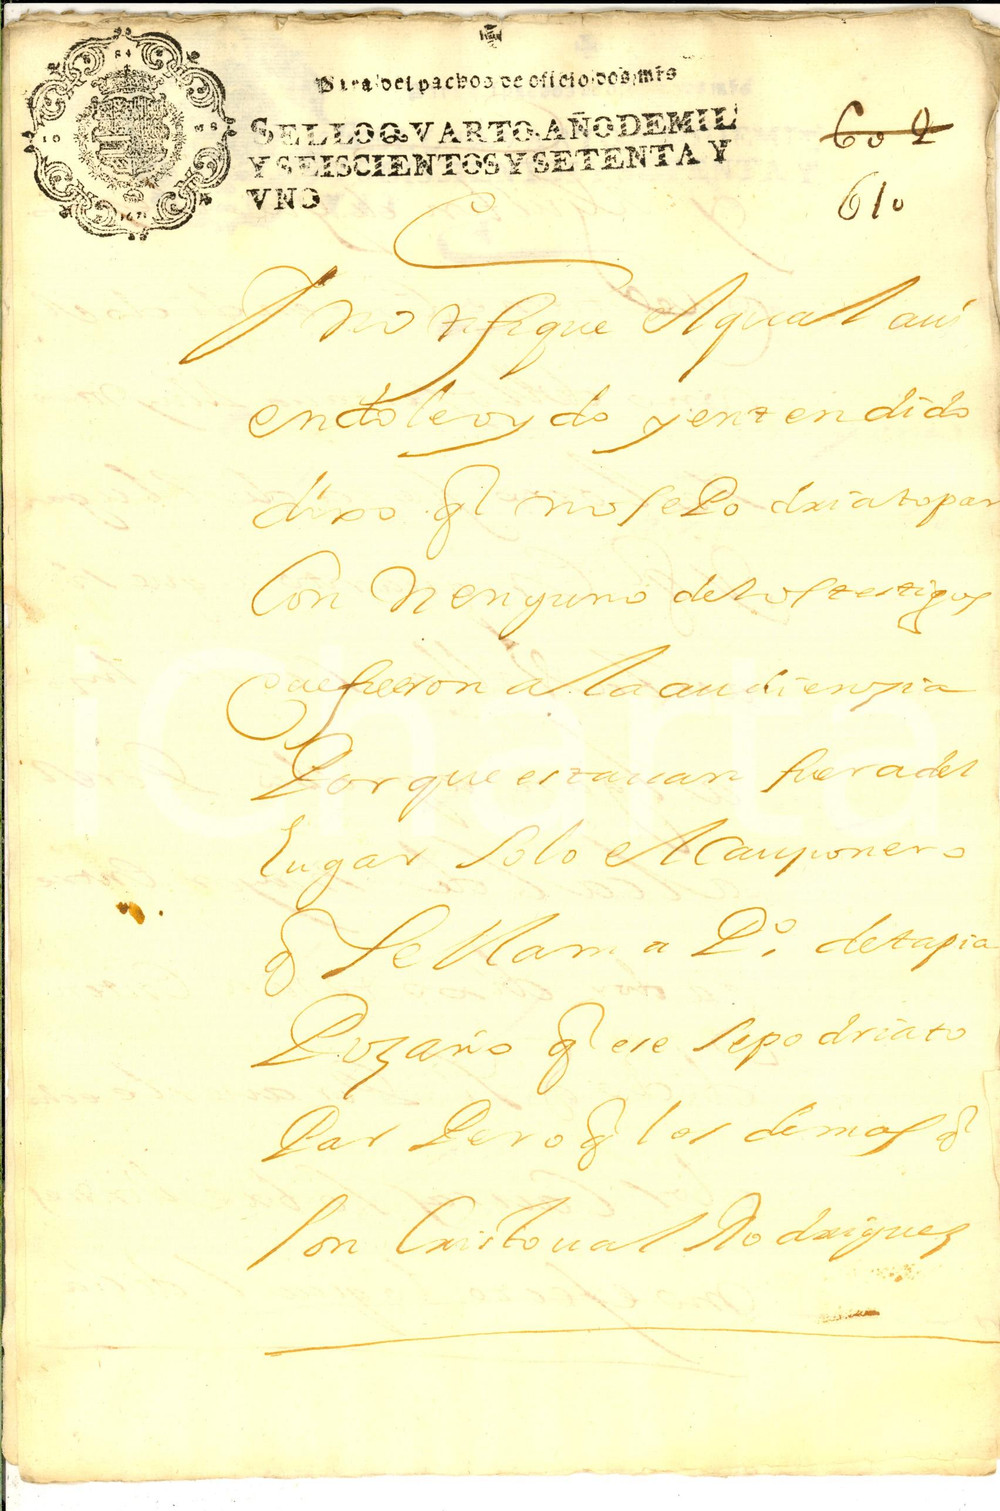 Para despachos de oficio dos mrs
SELLO QVARTO AÑO DE MIL
Y SEISCIENTOS Y SETENTA Y
VNO
602
610
notefique Al qual aui
endoleoydo y entendido
dixo q̃ no se Podria topar
Con Nenguno de los testigos
Que fueron a la audienzia
Porque estauan fuera del
Lugar solo el Camponero
q̃ se llama Pº. de tapia
Pozano q̃ ese se podria to
Par Pero q̃ los demas q̃
son Cristoual Rodriguez
1671
iCharta